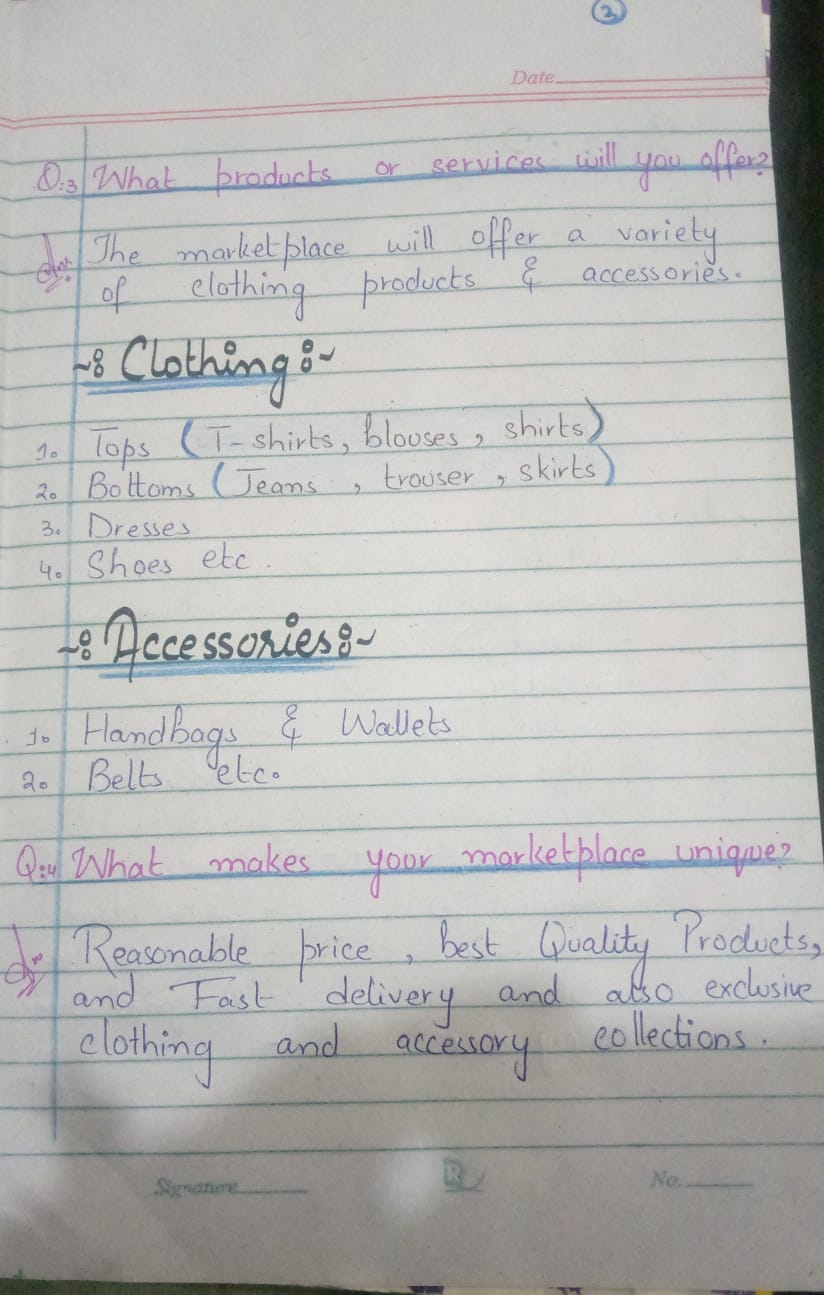 2
Date
Q:3 What products or services will you offer?
Ans The marketplace will offer a variety
of clothing products & accessories.
~: Clothing :~
1. Tops (T-shirts, blouses, shirts)
2. Bottoms (Jeans, trouser, skirts)
3. Dresses
4. Shoes etc.
~: Accessories :~
1. Handbags & Wallets
2. Belts etc.
Q:4 What makes your marketplace unique?
Ans Reasonable price, best Quality Products,
and Fast delivery and also exclusive
clothing and accessory collections.
Signature R No.